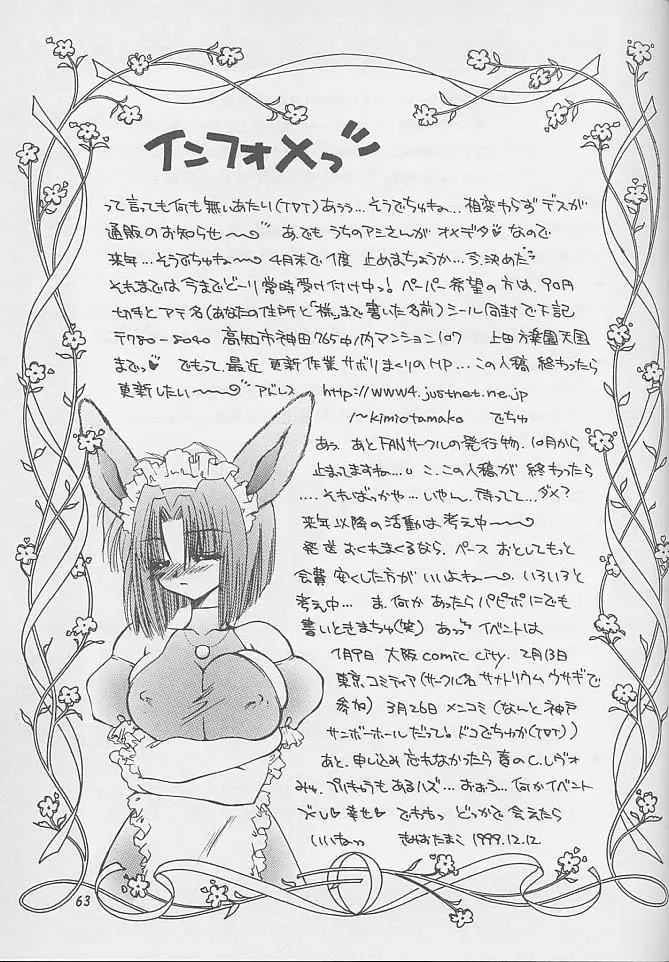 インフォメっ
って言っても何も無いあたり(TDT)あうぅ…そうでちゅね…相変わらずデスが
通販のお知らせ〜 あ、でもうちのアミさんがオメデタ♥なので
来年…そうでちゅね〜4月末で1度止めまちょうか…今、決めた?
それまでは今までどーり常時受け付け中っ!ペーパー希望の方は、90円
切手とアテ名(あなたの住所と「様」まで書いた名前)シール同封で下記
〒780-8040 高知市神田765 マンション107 上田方楽園天国
までっ♥ でもって、最近更新作業サボリまくりのHP…この人稿終わったら
更新したい〜 アドレス http://www4.justnet.ne.jp
/~kimiotamako でちゅ
あぅ、あとFANサークルの発行物、10月から
止まってますね…こ、この人稿が終わったら
....そればっかや…いやん、待ってて…ダメ?
来年以降の活動は考え中〜
発送おくれまくるなら、ペースおとしてもっと
会費安くした方がいいよね〜。いろいろと
考え中… ま、何かあったらパピポにでも
書いときまちゅ(笑) あっイベントは
1月9日 大阪comic city. 2月13日
東京コミティア(サークル名 サナトリウムウサギで
参加) 3月26日 メンコミ(なんと神戸
サンボーホールだって!ドコでちゅか(TDT))
あと、申し込み忘れなかったら春のC.レヴォ
みゅ、プリきゅうもあるハズ…おおぅ…何かイベント
♥幸せ♥ でももっ どっかで会えたら
いいねっ きみおたまこ 1999.12.12.
63